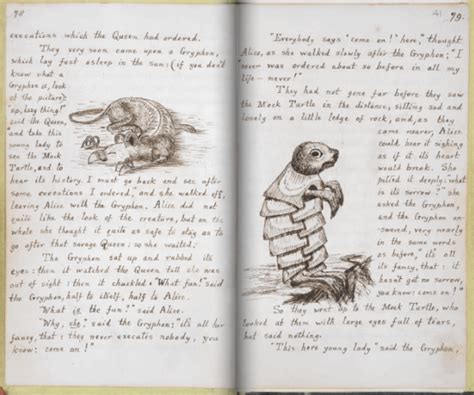 78
executions which the Queen had ordered.
They very soon came upon a Gryphon,
which lay fast asleep in the sun: (if you don't
know what a
Gryphon is, look
at the picture):
"up, lazy thing!"
said the Queen,
"and take this
young lady to
see the Mock
Turtle, and to
hear its history. I must go back and see after
some executions I ordered," and she walked off,
leaving Alice with the Gryphon. Alice did not
quite like the look of the creature, but on the
whole she thought it quite as safe to stay as to
go after that savage Queen: so she waited.
The Gryphon sat up and rubbed its
eyes: then it watched the Queen till she was
out of sight: then it chuckled. "What fun!" said
the Gryphon, half to itself, half to Alice.
"What is the fun?" said Alice.
"Why, she," said the Gryphon; "it's all her
fancy, that: they never executes nobody, you
know: come on!"
41 79.
"Everybody says 'come on!' here," thought
Alice, as she walked slowly after the Gryphon; "I
never was ordered about so before in all my
life—never!"
They had not gone far before they saw
the Mock Turtle in the distance, sitting sad and
lonely on a little ledge of rock, and, as they
came nearer, Alice
could hear it sighing
as if its heart
would break. She
pitied it deeply: "what
is its sorrow?" she
asked the Gryphon,
and the Gryphon an-
swered, very nearly
in the same words
as before, "it's all
its fancy, that: it
hasn't got no sorrow,
you know: come on!"
So they went up to the Mock Turtle, who
looked at them with large eyes full of tears,
but said nothing.
"This here young lady" said the Gryphon,